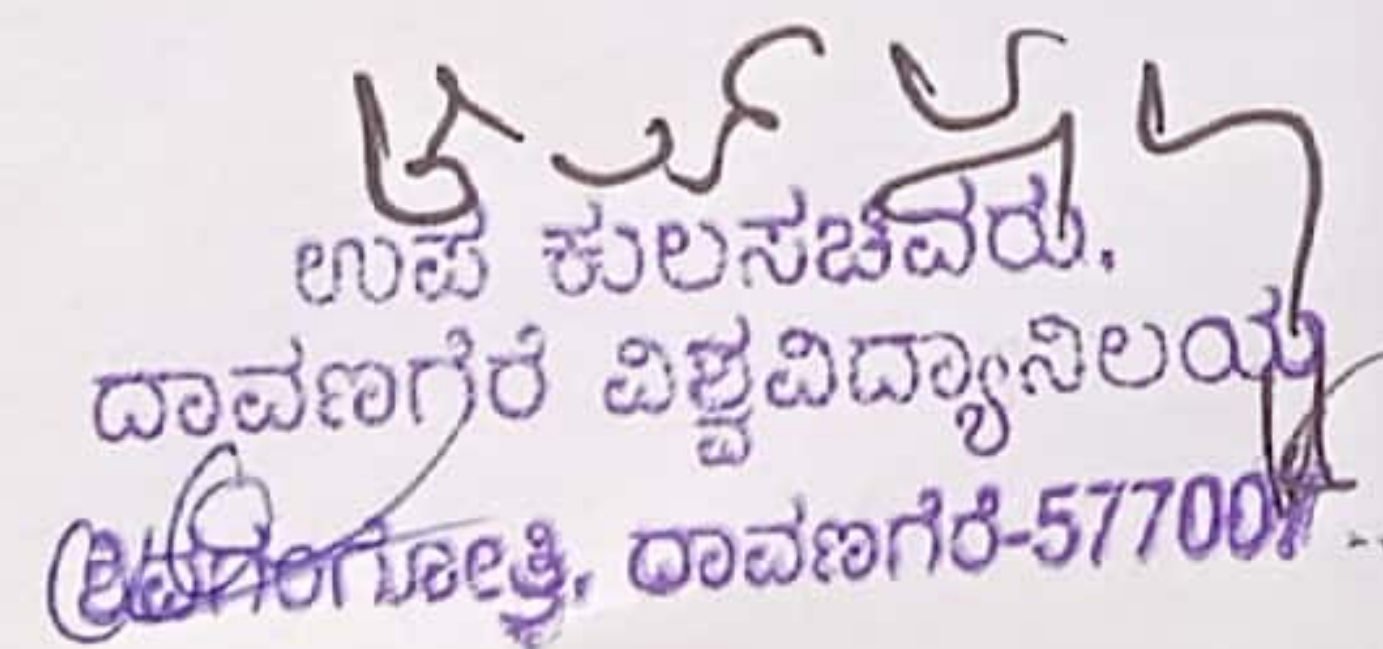 ಉಪ ಕುಲಸಚಿವರು.
ದಾವಣಗೆರೆ ವಿಶ್ವವಿದ್ಯಾನಿಲಯ
ಶಿವಗಂಗೋತ್ರಿ, ದಾವಣಗೆರೆ-577007